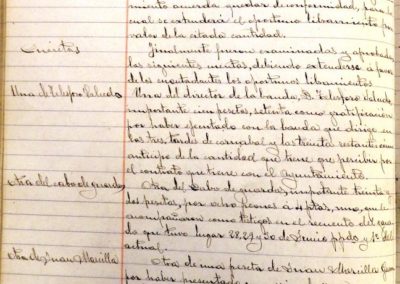 miento acuerda quedar de conformidad, para lo
cual se extenderá el oportuno libramiento por
valor de la citada cantidad.
Cuentas Finalmente fueron examinadas y aprobadas
las siguientes cuentas, debiendo extenderse a favor
de los importantes los oportunos libramientos
Una de Telesforo Una del director de la banda, D. Telesforo
importante cien pesetas, setenta como gratificación
por haber ejecutado con la banda que dirige en
las tres tardes de carnaval y las treinta restantes como
anticipo de la cantidad que tiene que percibir por
el contrato que tiene con el Ayuntamiento.
Otra del cabo de guardas Otra del Cabo de guardas, importante treinta y
dos pesetas, por ocho peones a 4 ptas, uno, que le
acompañaron como testigos en el recuento del gana
do que tuvo lugar 28, 29 y 30 de Junio ppdo y 1º del
actual.
Otra de Juan Otra de una peseta de Juan
por haber presentado